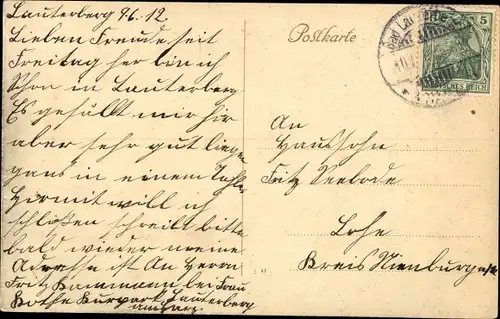 Lauterberg 9.6.12
Lieben Freude seit
Freitag her bin ich
Schon in Lauterberg
Es gefällt mir hir
aber sehr gut liegen
gans in einem
Hirmit will ich
schließen schreibt bitte
bald wieder meine
Adresse ist An Herrn
Fritz Hammann bei Frau
Kothe Kurpark Lauterberg
am Harz.
Postkarte
5
DEUTSCHES REICH
An
Haussohn
Fritz Seebode
Lohe
Kreis Nienburg a/W